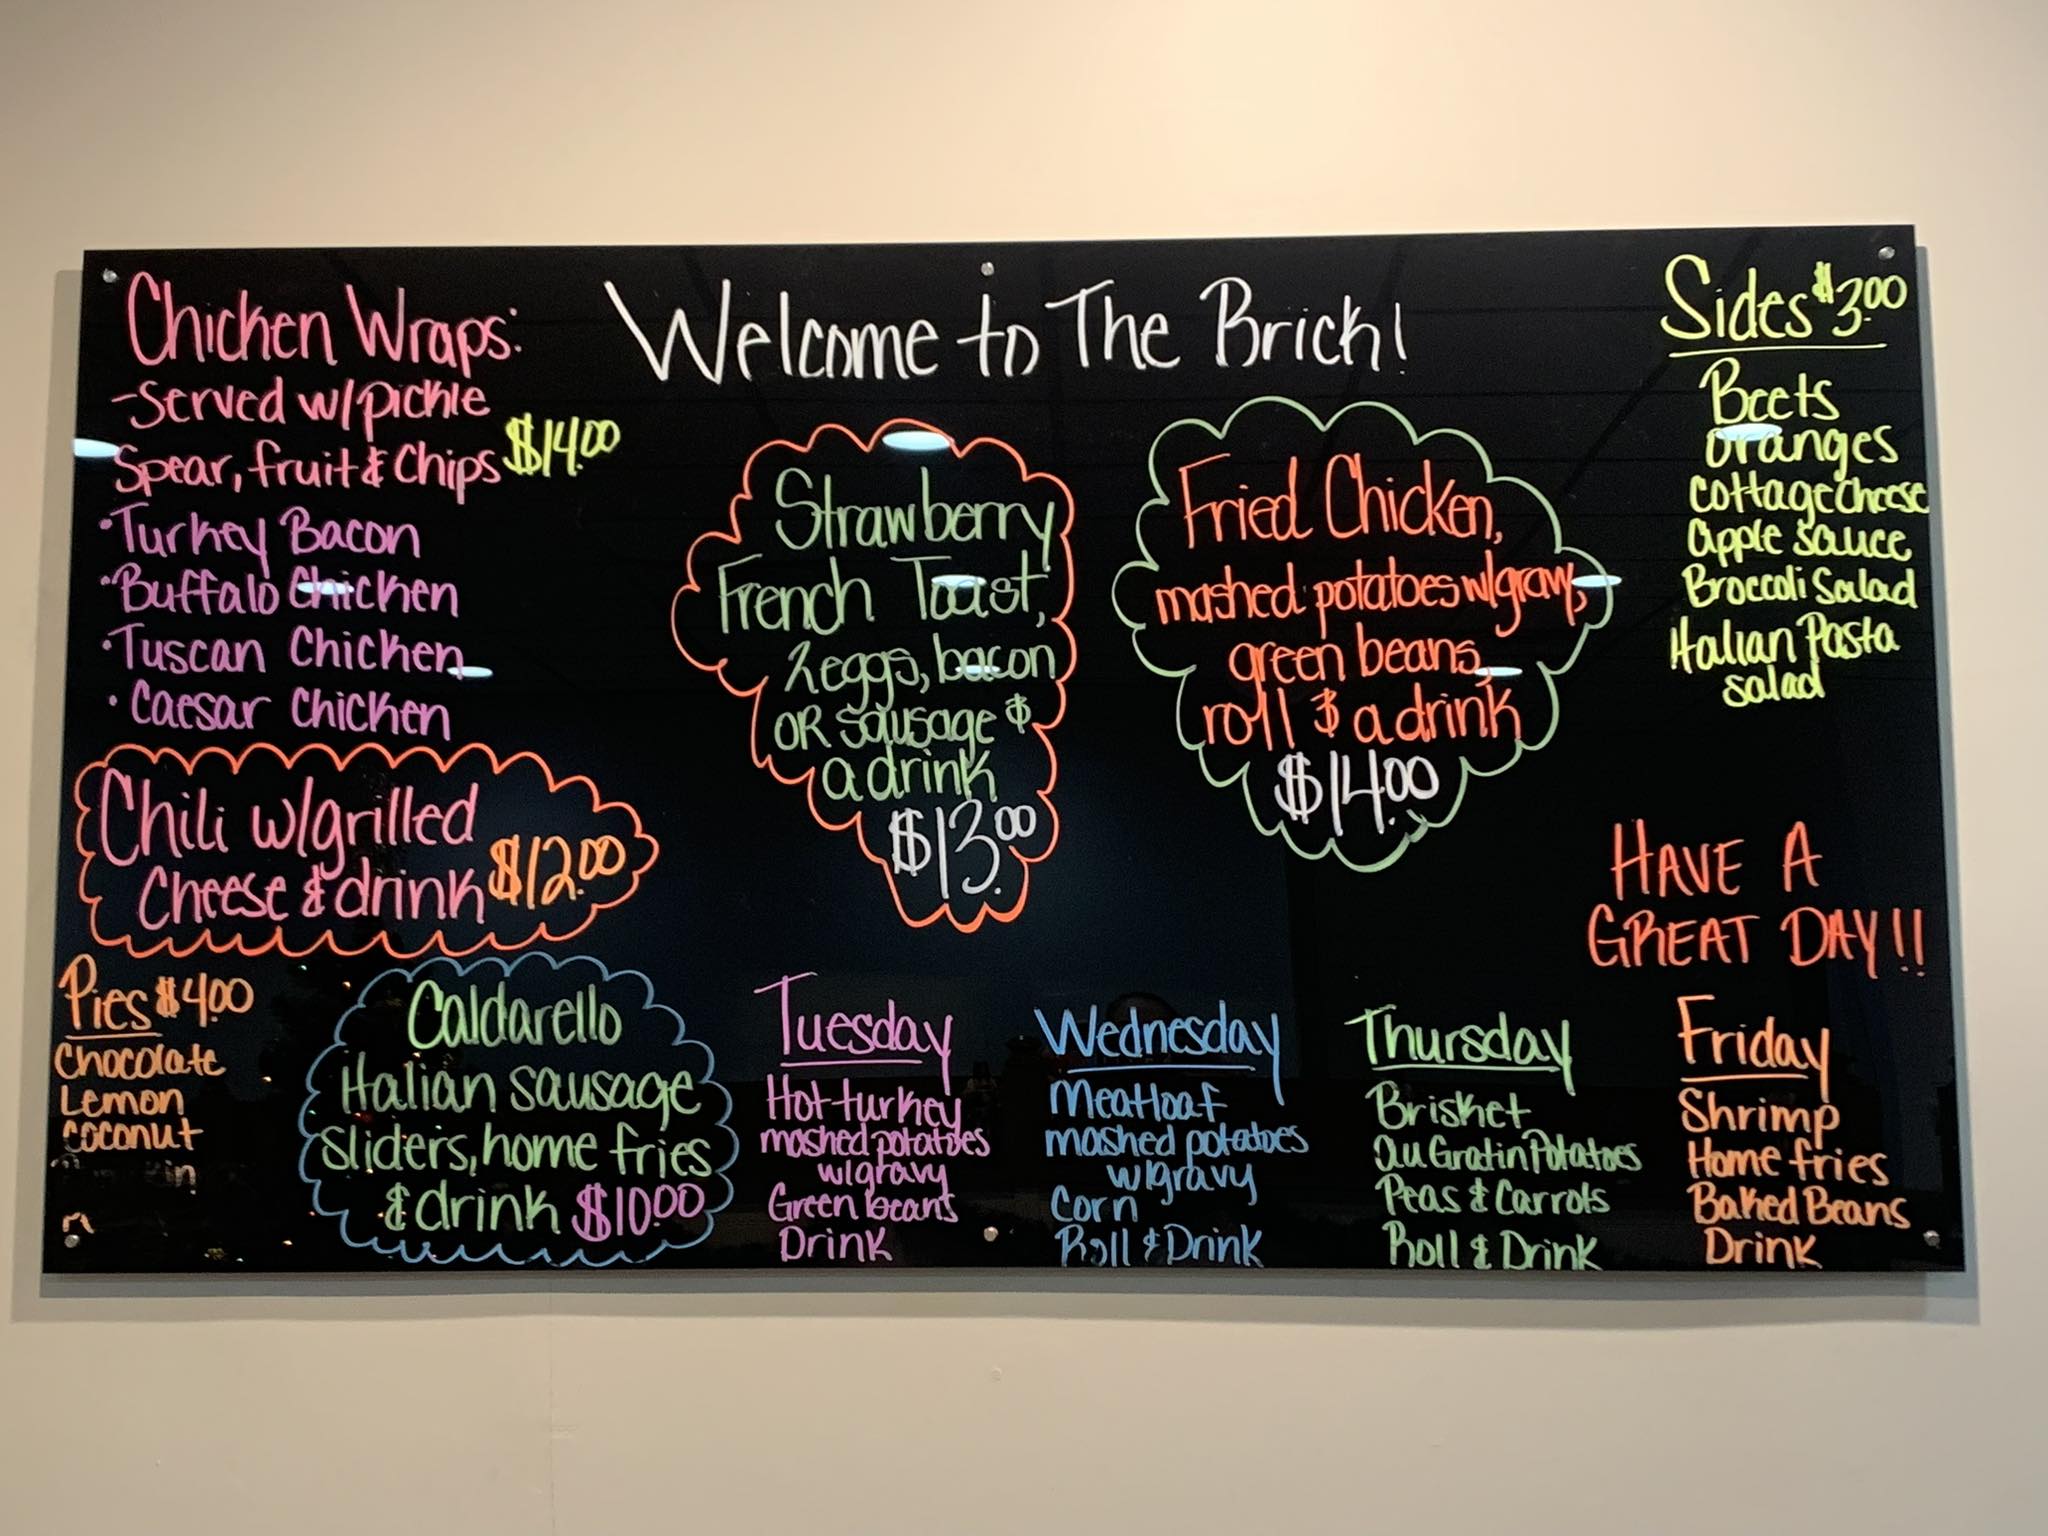 Welcome to The Brick!
Chicken Wraps:
-Served w/pickle
Spear, fruit & Chips $14.00
•Turkey Bacon
•Buffalo Chicken
•Tuscan Chicken
•Caesar Chicken
Chili w/grilled
Cheese & drink $12.00
Pies $4.00
Chocolate
Lemon
coconut
Caldarello
italian sausage
sliders, home fries
& drink $10.00
Strawberry
French Toast,
2 eggs, bacon
OR sausage &
a drink
$13.00
Fried Chicken,
mashed potatoes w/gravy,
green beans,
roll & a drink
$14.00
Sides $3.00
Beets
oranges
cottage cheese
apple sauce
Broccoli Salad
italian Pasta
salad
HAVE A
GREAT DAY!!
Tuesday
Hot turkey
mashed potatoes
w/gravy
Green beans
Drink
Wednesday
Meatloaf
mashed potatoes
w/gravy
Corn
Roll & Drink
Thursday
Brisket
au Gratin Potatoes
Peas & Carrots
Roll & Drink
Friday
Shrimp
Home fries
Baked Beans
Drink